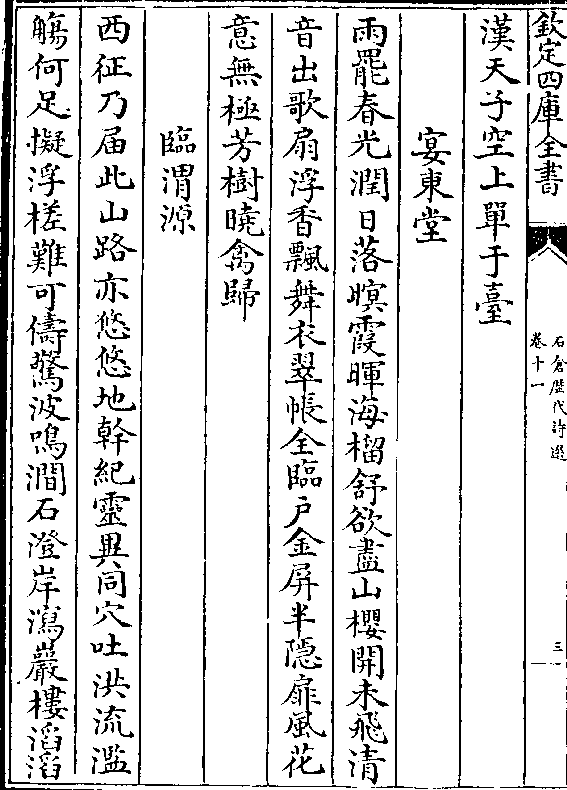 欽定四庫全書
石倉歴代詩選
卷十一
三
漢天子空上單于臺
宴東堂
雨罷春光潤日落暝霞暉海榴舒欲盡山櫻開未飛清
音出歌扇浮香飄舞衣翠帳全臨户金屏半隐扉風花
意無極芳樹曉禽歸
臨渭源
西征乃届此山路亦悠悠地幹紀靈異同穴吐洪流濫
觴何足擬浮槎難可儔驚波鳴澗石澄岸瀉巖樓滔滔